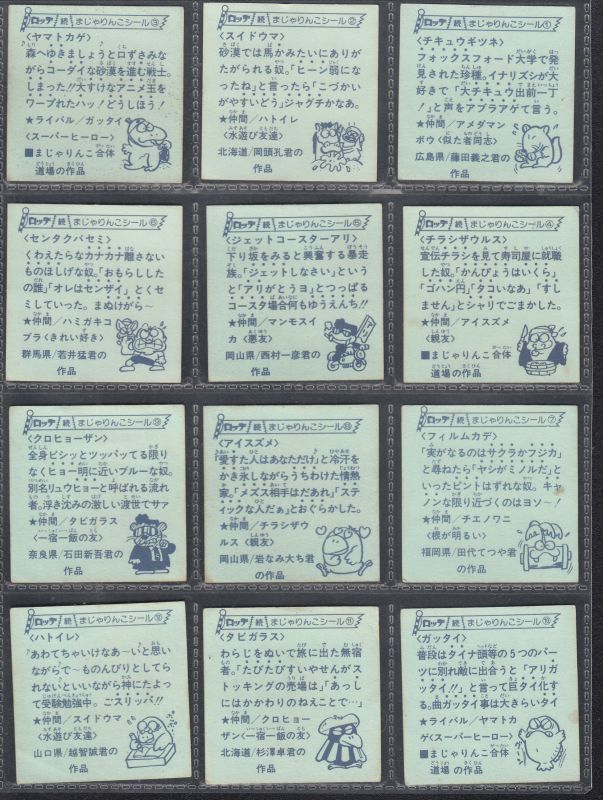 ロッテ 続 まじゃりんこシール③
〈ヤマトカゲ〉
森へゆきましょうと口ずさみな
がらコーダイな砂漠を進む戦士。
しまった!大すけなアニメ玉を
ワープれたハッ!どうしほう!
★ライバル/ガッタイ
〈スーパーヒーロー〉
■まじゃりんこ合体
道場の作品
ロッテ 続 まじゃりんこシール②
〈スイドウマ〉
砂漠では馬かみたいにありが
たがられる奴。「ヒーン弱になっ
たね」と言ったら「こづかい
がやすいどう」ジャグチかなあ。
★仲間/ハトイレ
〈水遊び友達〉
北海道/岡頭孔君の
作品
ロッテ 続 まじゃりんこシール①
〈チキュウギツネ〉
フォックスフォード大学で発
見された珍種。イナリズシが大
好きで「大チキュウ出前一丁
!」と声をアブラアゲて言う。
★仲間/アメダマン
ボウ〈似た者同志〉
広島県/藤田義之君の
作品
ロッテ 続 まじゃりんこシール⑥
〈センタクバセミ〉
くわえたらなカナカナ離さない
ものほしげな奴。「おもらしした
の誰」「オレはセンザイ」とくセ
ミしていった。まぬけがら〜
★仲間/ハミガキコ
ブラ〈きれい好き〉
群馬県/若井猛君の
作品
ロッテ 続 まじゃりんこシール⑤
〈ジェットコースターアリ〉
下り坂をみると興奮する暴走
族。「ジェットしなさい」という
と「アリがとうヨ」とつっぱる
コースタ場合何もゆうえんち!!
★仲間/マンモスイ
カ〈悪友〉
岡山県/西村一彦君の
作品
ロッテ 続 まじゃりんこシール④
〈チラシザウルス〉
宣伝チラシを見て寿司屋に就職
した奴。「かんぴょうはいくら」
「ゴハン円」「タコいなあ」「すし
ません」とシャリでごまかした。
★仲間/アイスズメ
〈親友〉
■まじゃりんこ合体
道場の作品
ロッテ 続 まじゃりんこシール⑨
〈クロヒョーザン〉
全身ビシッとツッパッてる限り
なくヒョー明に近いブルーな奴。
別名リュウヒョーと呼ばれる流れ
者。浮き沈みの激しい渡世でサァ
★仲間/タビガラス
〈一宿一飯の友〉
奈良県/石田新吾君の
作品
ロッテ 続 まじゃりんこシール⑧
〈アイスズメ〉
「愛すた人はあなただけ」と冷汗を
かき氷ながらうちわけた情熱
家。「メズス相手はだあれ」「ステ
ィックな人だぁ」とおぐらかした。
★仲間/チラシザウ
ルス〈親友〉
岡山県/岩なみ大ち君
の作品
ロッテ 続 まじゃりんこシール⑦
〈フィルムカデ〉
「実がなるのはサクラかフジカ」
と尋ねたら「ヤシがミノルだ」と
いったピントはずれな奴。キャ
ノンな限り近づくのはヨソ〜!
★仲間/チエノワニ
〈根が明るい〉
福岡県/田代てつや君
の作品
ロッテ 続 まじゃりんこシール⑫
〈ハトイレ〉
「あわてちゃいけなあ〜い」と思い
ながらで〜ものんびりとしてら
れないといいながら神にたよっ
て受験勉強中。ごスリッパ!!
★仲間/スイドウマ
〈水遊び友達〉
山口県/越智誠君の
作品
ロッテ 続 まじゃりんこシール⑪
〈タビガラス〉
わらじをぬいで旅に出た無宿
者。「たびたびすいやせんがス
トッキングの売場は」「あっし
にはかかわりのねえことで…」
★仲間/クロヒョー
ザン〈一宿一飯の友〉
北海道/杉澤卓君の
作品
ロッテ 続 まじゃりんこシール⑩
〈ガッタイ〉
普段はタイナ頭等の5つのパー
ツに別れ敵に出合うと「アリガ
ッタイ!!」と言って巨タイ化す
る。曲ガッタイ事は大きらいタイ
★ライバル/ヤマトカ
ゲ〈スーパーヒーロー〉
■まじゃりんこ合体
道場の作品